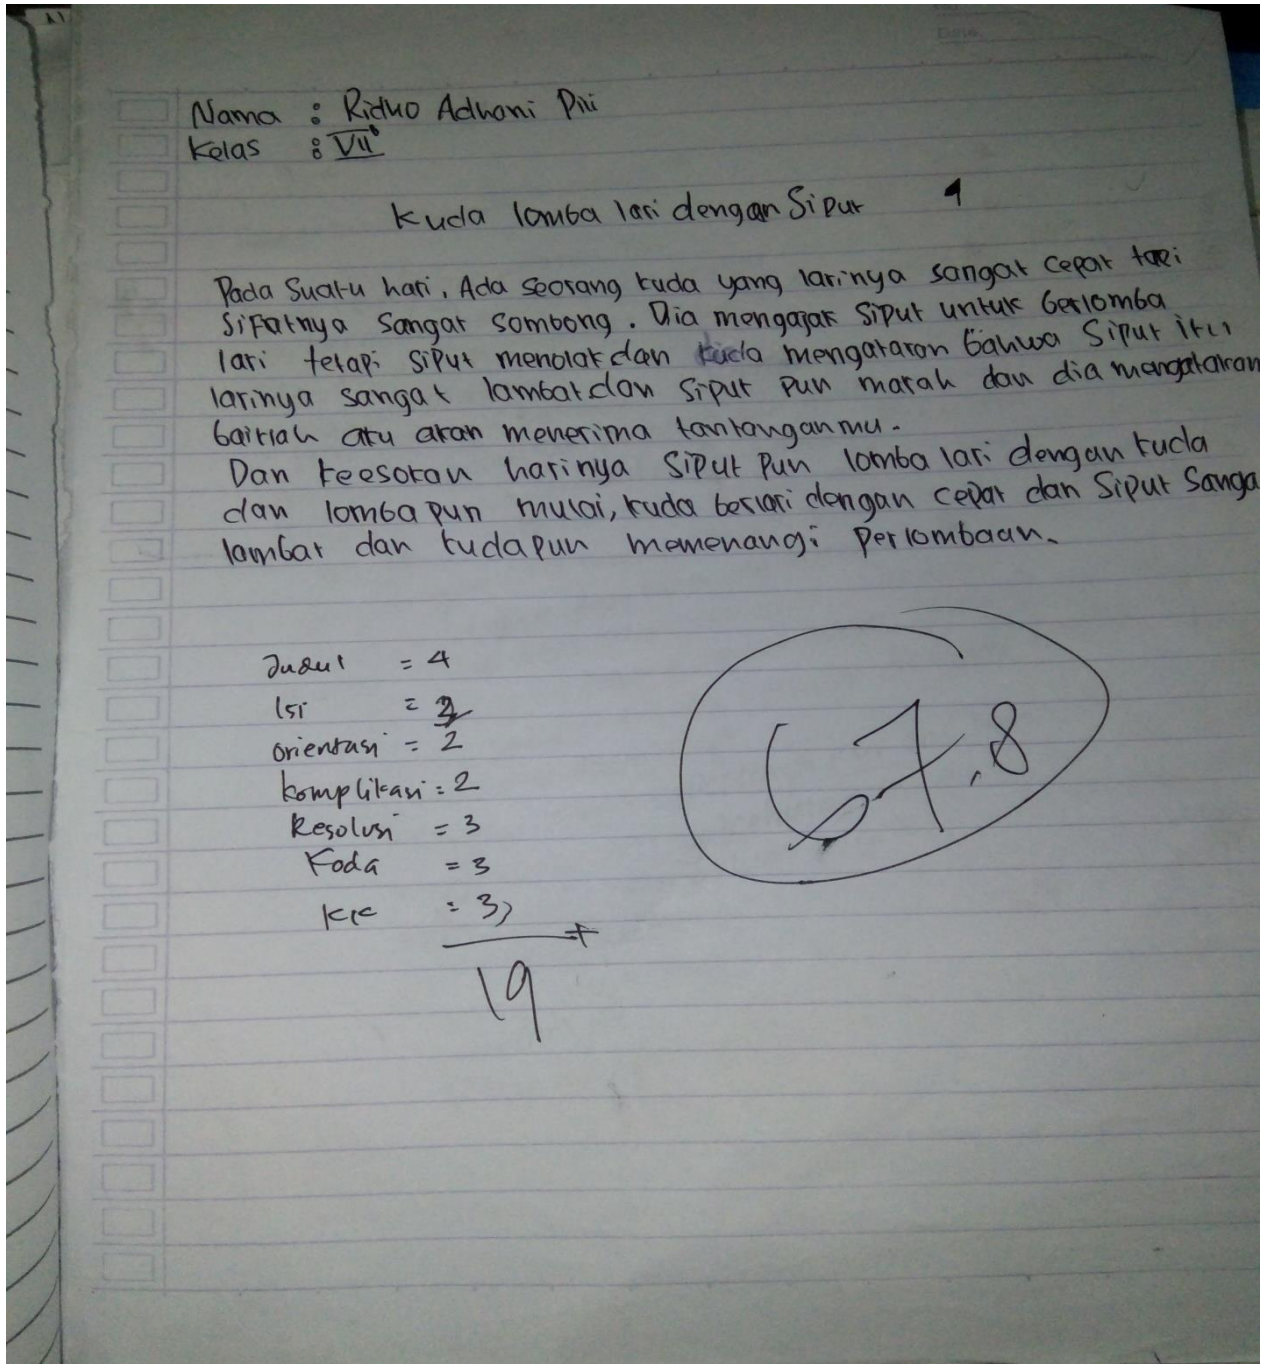 Nama : Ridho Adhani Piri
Kelas : VII b
Kuda lomba lari dengan Siput 4
Pada Suatu hari, Ada seorang kuda yang larinya sangat cepat tapi
Sifatnya Sangat Sombong. Dia mengajak Siput untuk berlomba
lari tetapi siput menolak dan kuda mengatakan bahwa Siput itu
larinya sangat lambat dan siput pun marah dan dia mengatakan
baiklah aku akan menerima tantanganmu.
Dan keesokan harinya Siput Pun lomba lari dengan kuda
dan lomba pun mulai, kuda berlari dengan cepat dan Siput Sanga
lambat dan kudapun memenangi Perlombaan.
Judul = 4
Isi = 2
Orientasi = 2
komplikasi = 2
Resolusi = 3
Koda = 3
KK = 3
+
19
67,8